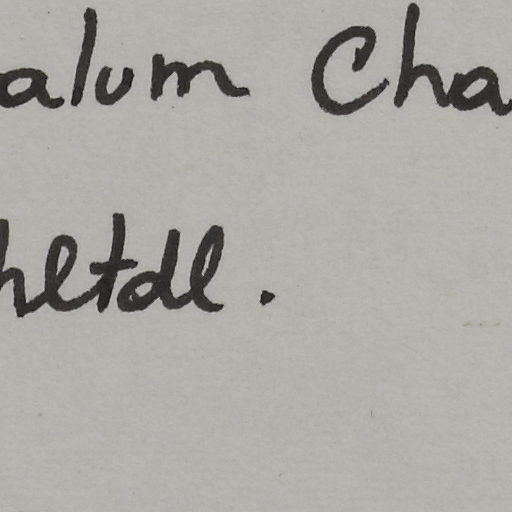 alum Cha
hltdl.